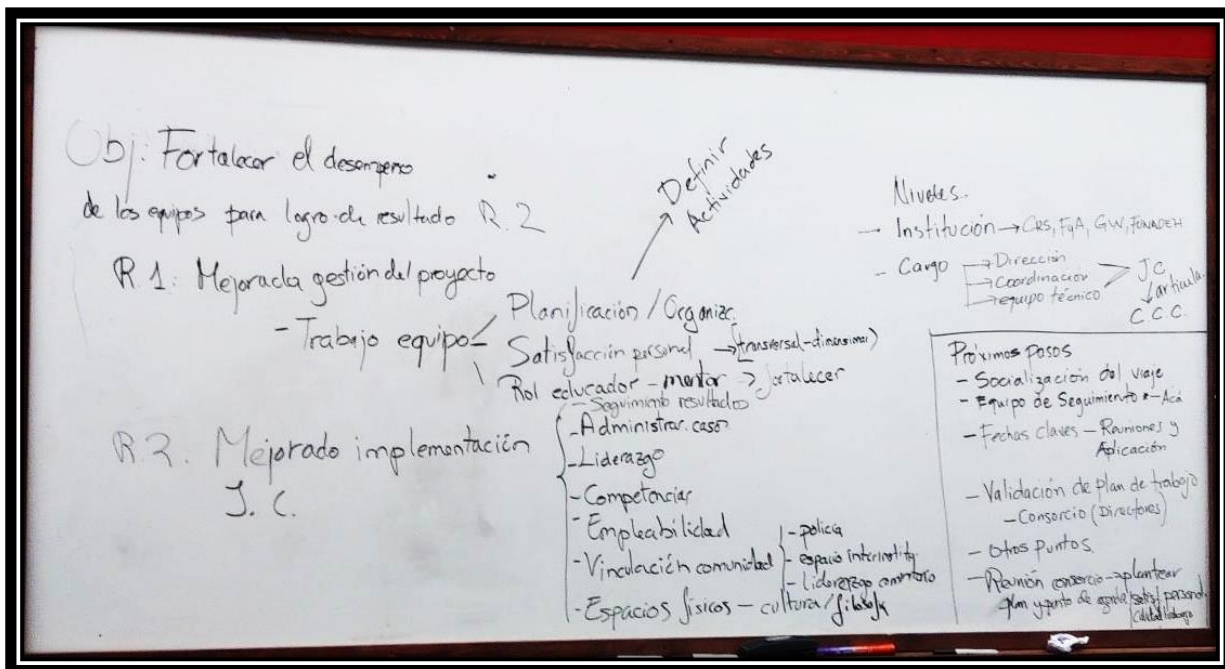 Obj: Fortalecer el desempeno
de los equipos para logro de resultado R.2
R.1: Mejorada gestión del proyecto
- Trabajo equipo
Planificación / Organizac.
→ Definir
Actividades
Satisfacción personal → (transversal-dimensionar)
Rol educador - mentor → fortalecer
- Seguimiento resultados
R.2. Mejorado implementación
J. C.
- Administrar. caso
- Liderazgo
- Competencias
- Empleabilidad
- Vinculación comunidad
- policía
- espacio interinstity.
- liderazgo comunitario
- Espacios físicos - cultura/filosofía
Niveles.
- Institución → CRS, FyA, GW, FUNADEH
- Cargo
→ Dirección
→ Coordinación
→ equipo técnico
J C
↓ articula.
C C C.
Próximos pasos
- Socialización del viaje
- Equipo de Seguimiento * - Acá
- Fechas claves - Reuniones y
Aplicación
- Validación de plan de trabajo
- Consorcio (Directores)
- Otros Puntos.
- Reunión consorcio → plantear
plan y punto de agenda/satis/personal
/calidad trabajo